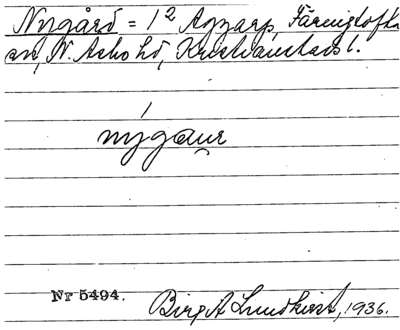 Nygård = 1² Agzarp, Färingtofta
sn, N. Åsbo hd, Kristianstads l.
nýgaur
Nr 5494.
Birgit Lundkvist, 1936.